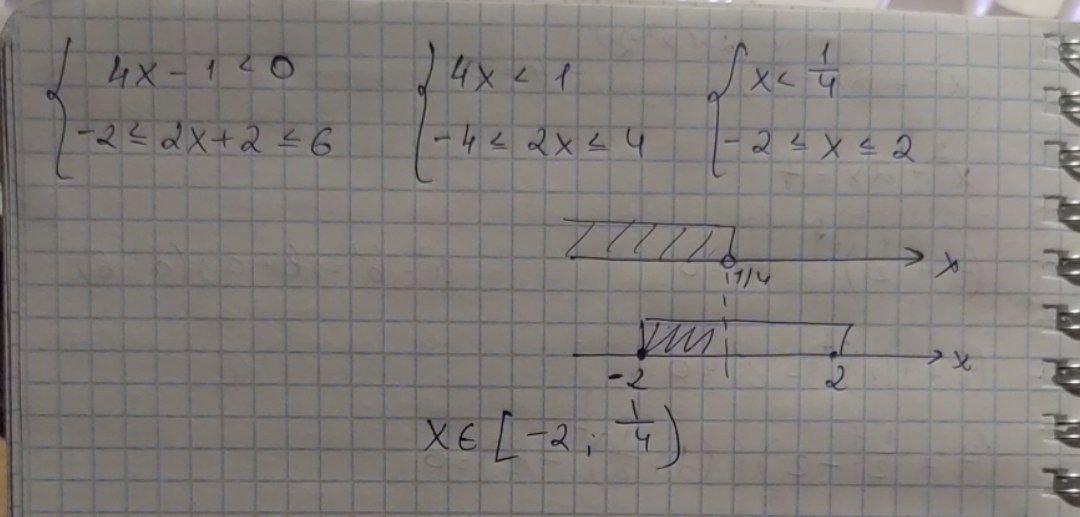 { 4x - 1 < 0
-2 ≤ 2x + 2 ≤ 6
{ 4x < 1
-4 ≤ 2x ≤ 4
{ x < 1/4
-2 ≤ x ≤ 2
1/4 x
-2 2 x
x ∈ [-2; 1/4)